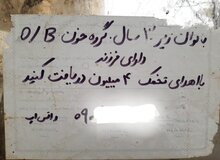 بانوان زیر ۳۰ سال، گروه خون O/B
دارای فرزند
با اهدای تخمک ۴ میلیون دریافت کنید
۰۹۰ واتس اپ